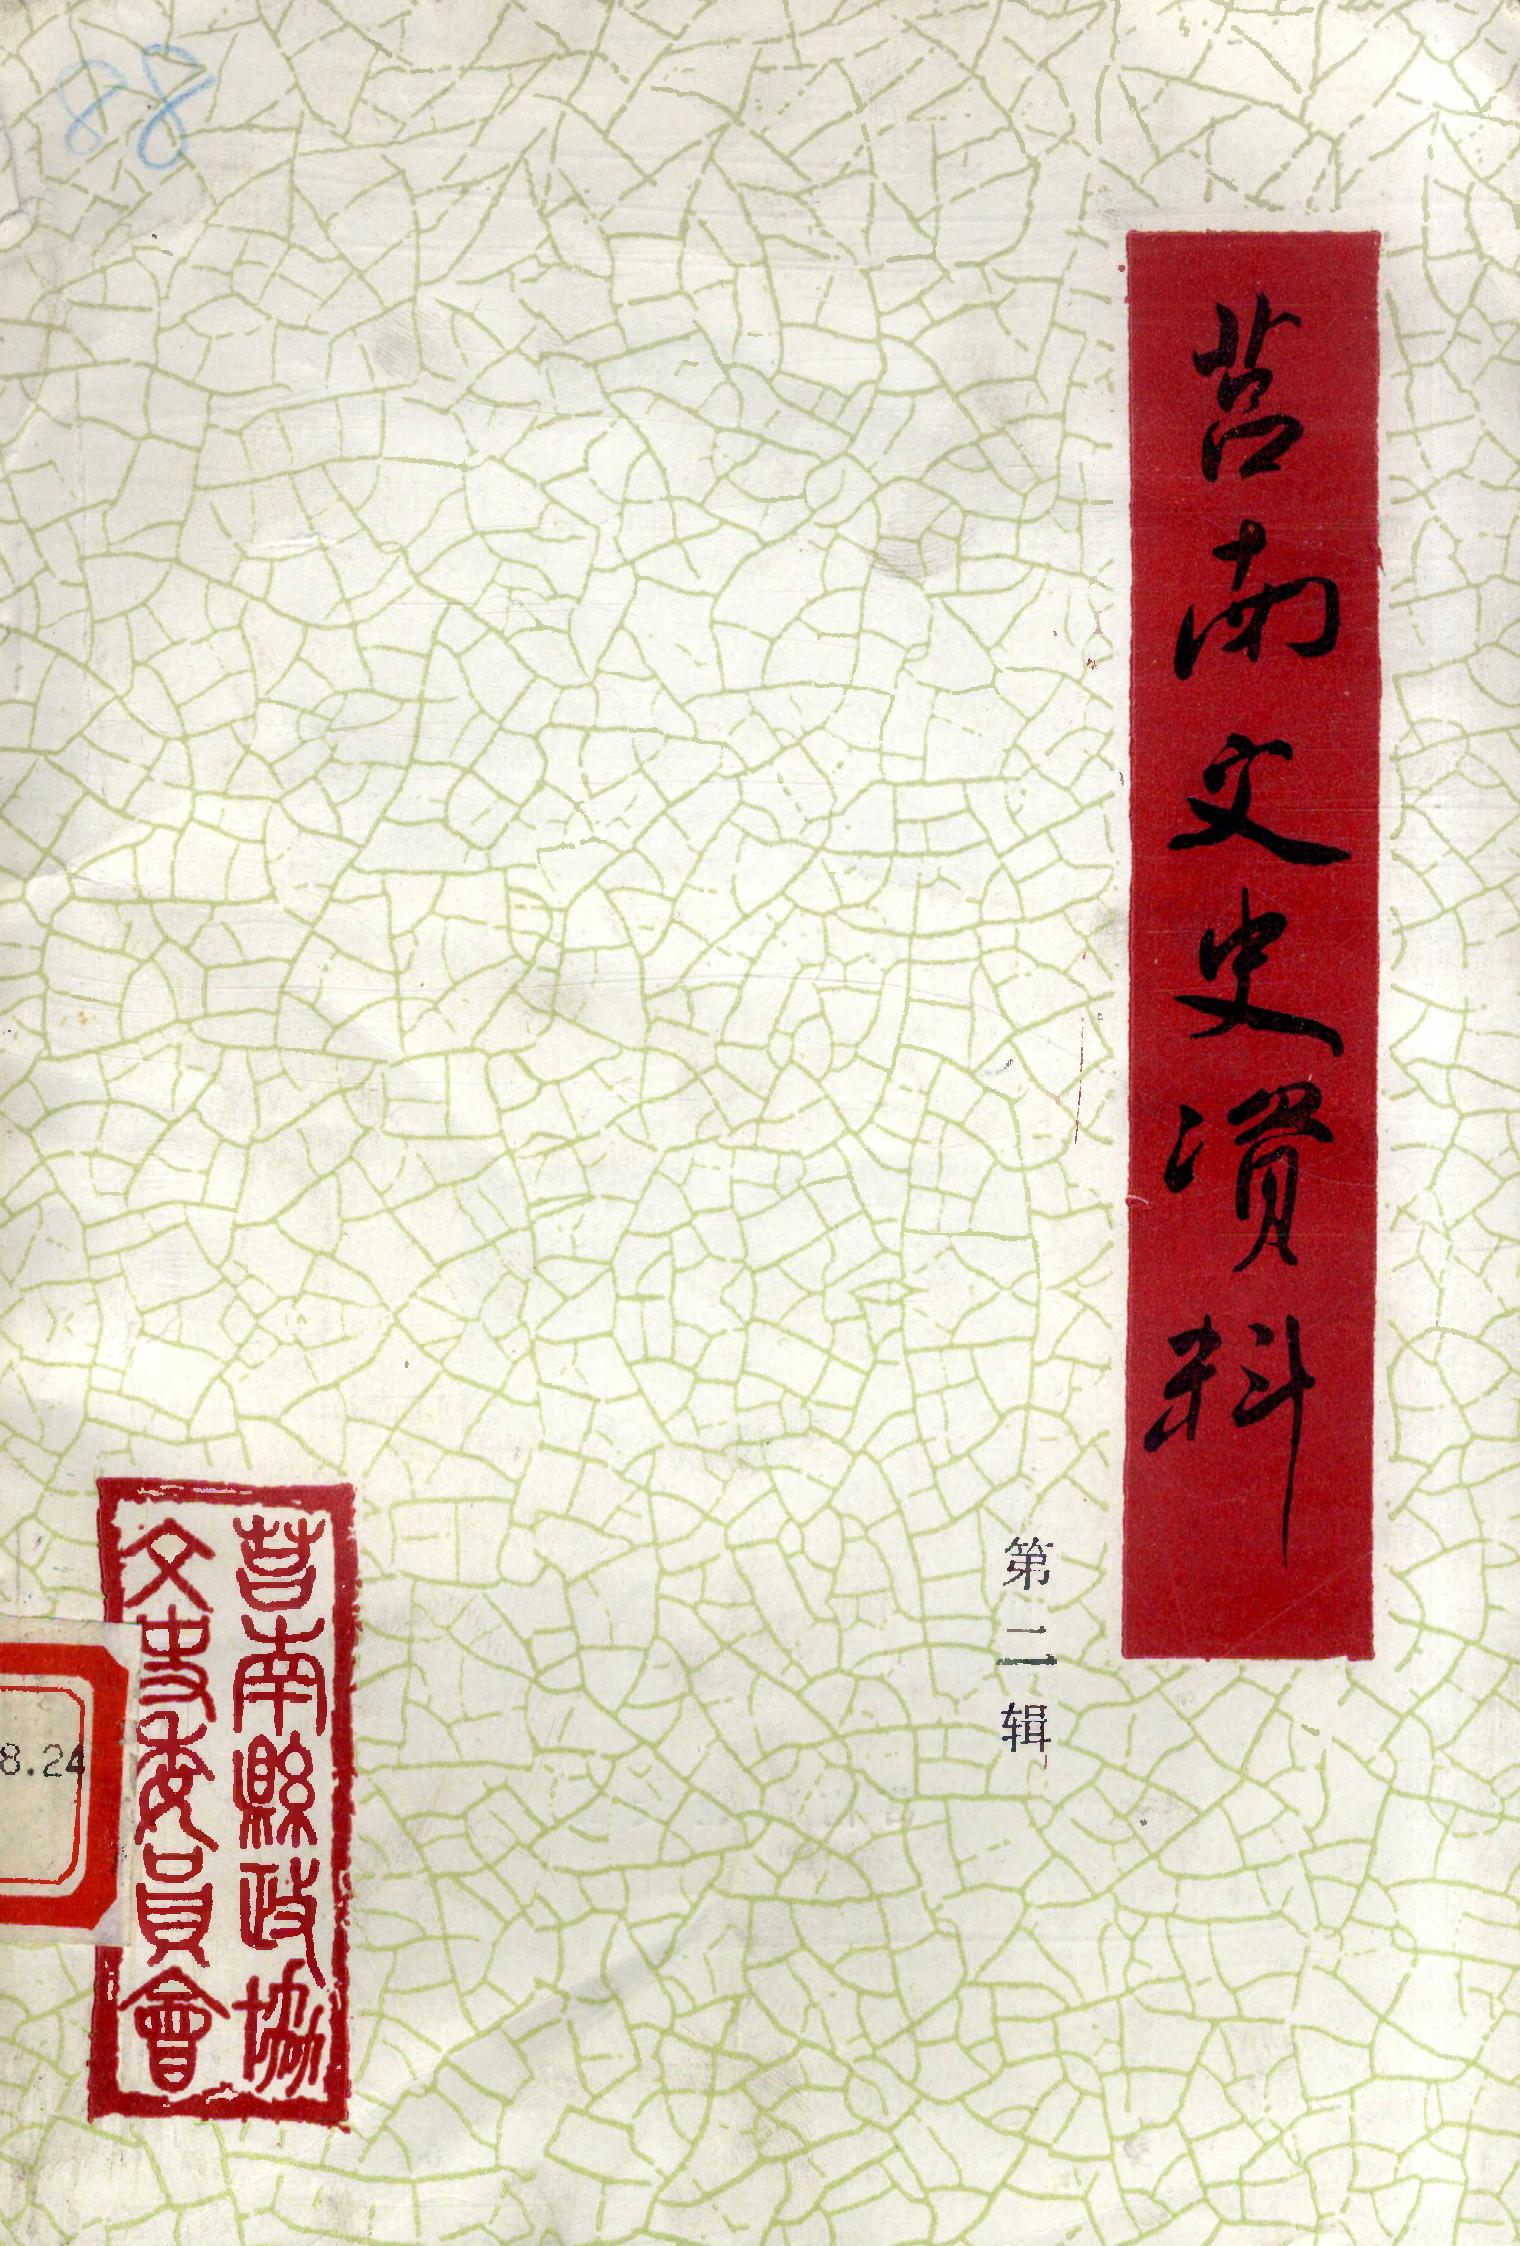 莒南文史资料
第二辑
莒南縣政協
文史委員會
8.24
88